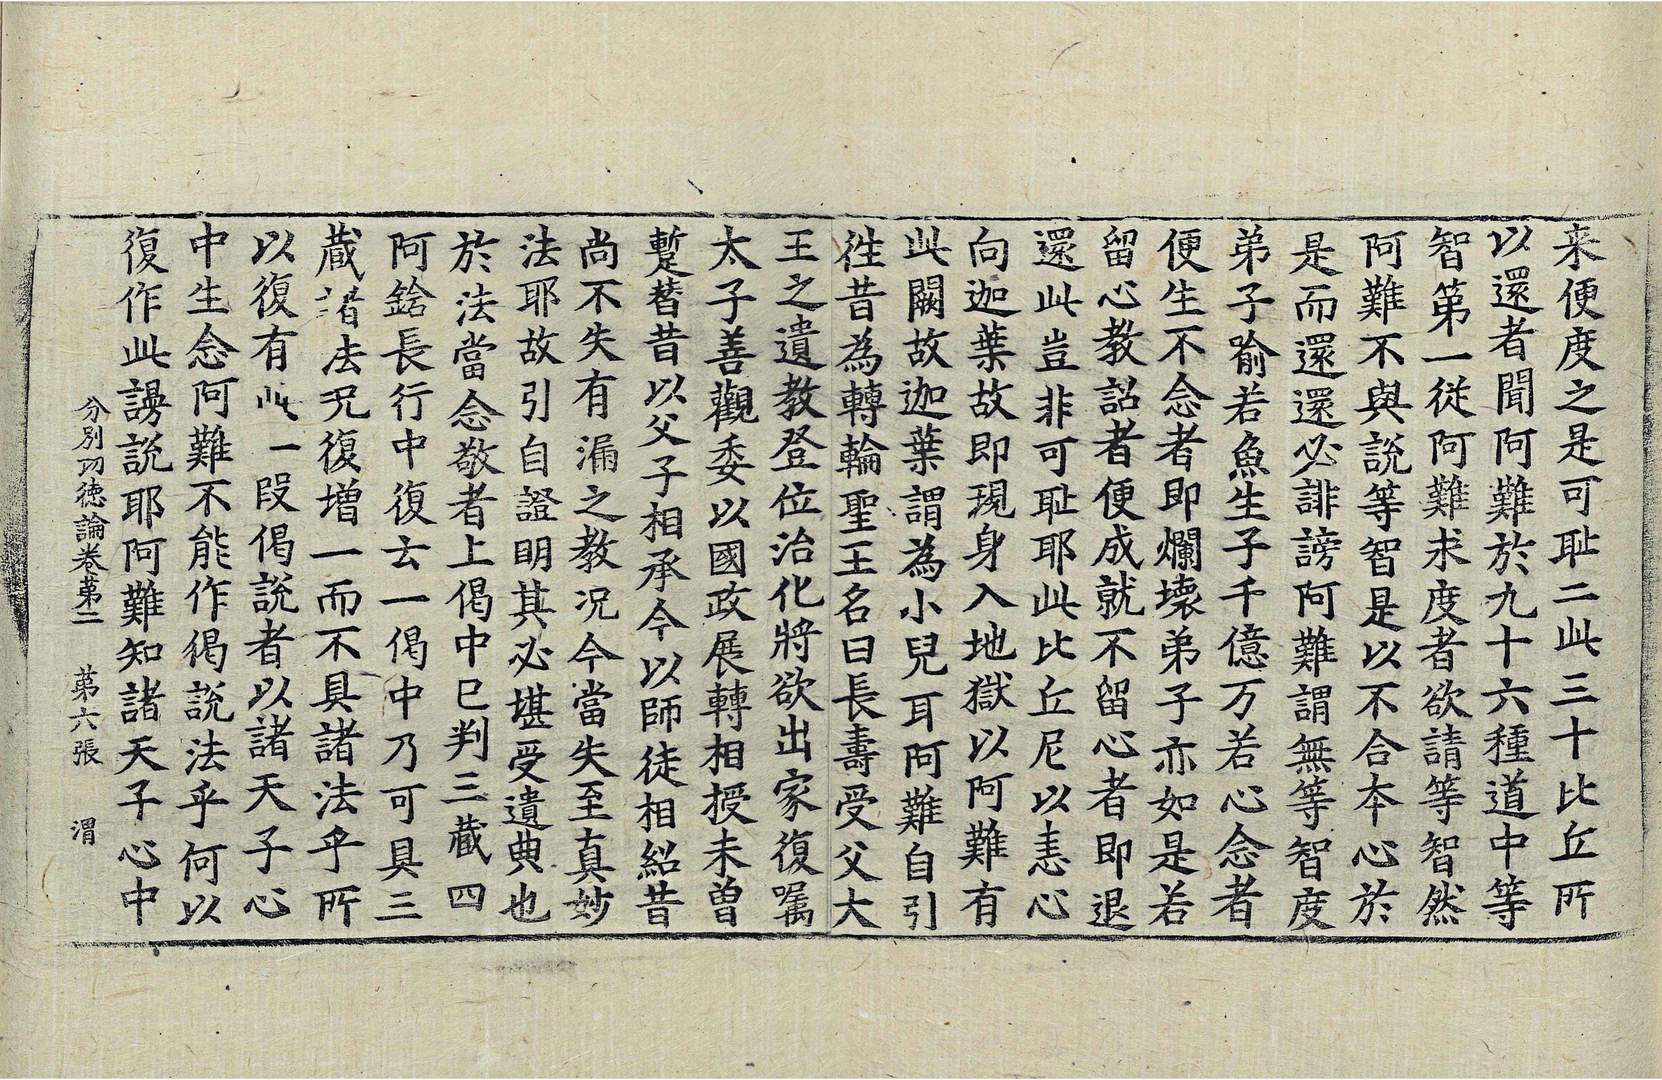 来便度之是可耻二此三十比丘所
以還者聞阿難於九十六種道中等
智第一從阿難求度者欲請等智然
阿難不與說等智是以不合本心於
是而還還必誹謗阿難謂無等智度
弟子喻若魚生子千億万若心念者
便生不念者即爛壞弟子亦如是若
留心教詔者便成就不留心者即退
還此豈非可耻耶此比丘尼以恚心
向迦葉故即現身入地獄以阿難有
此闕故迦葉謂為小兒耳阿難自引
徃昔為轉輪聖王名曰長壽受父大
王之遺教登位治化將欲出家復囑
太子善觀委以國政展轉相授未曾
蹔替昔以父子相承今以師徒相紹昔
尚不失有漏之教况今當失至真妙
法耶故引自證明其必堪受遺典也
於法當念敬者上偈中已判三藏四
阿鋡長行中復云一偈中乃可具三
藏諸法况復增一而不具諸法乎所
以復有此一段偈說者以諸天子心
中生念阿難不能作偈說法乎何以
復作此謗說耶阿難知諸天子心中
分別功徳論卷第二　第六張　渭